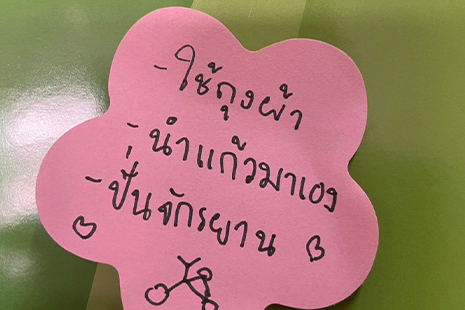 - ใช้ถุงผ้า
- นำแก้วมาเอง
- ปั่นจักรยาน